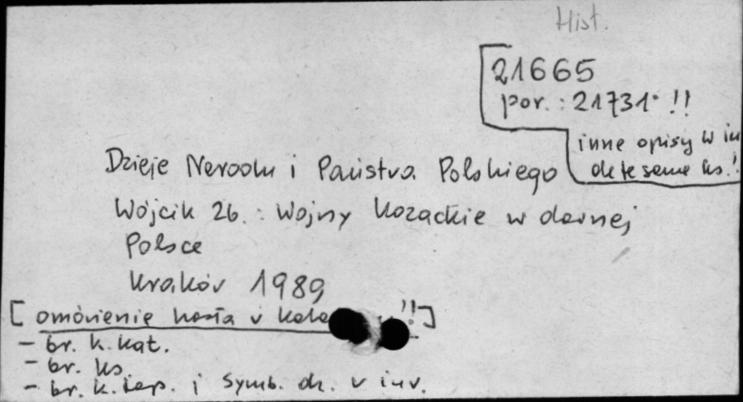 Hist.
21665
por.: 21731 !!
inne opisy w
ale te same ks.!
Dzieje Narodu i Państwa Polskiego
Wójcik Zb.: Wojny kozackie w dawnej
Polsce
Kraków 1989
[omówienie hasła w !!]
- br. k. kat.
- br. ks.
- br. k. i symb. dz. w inw.